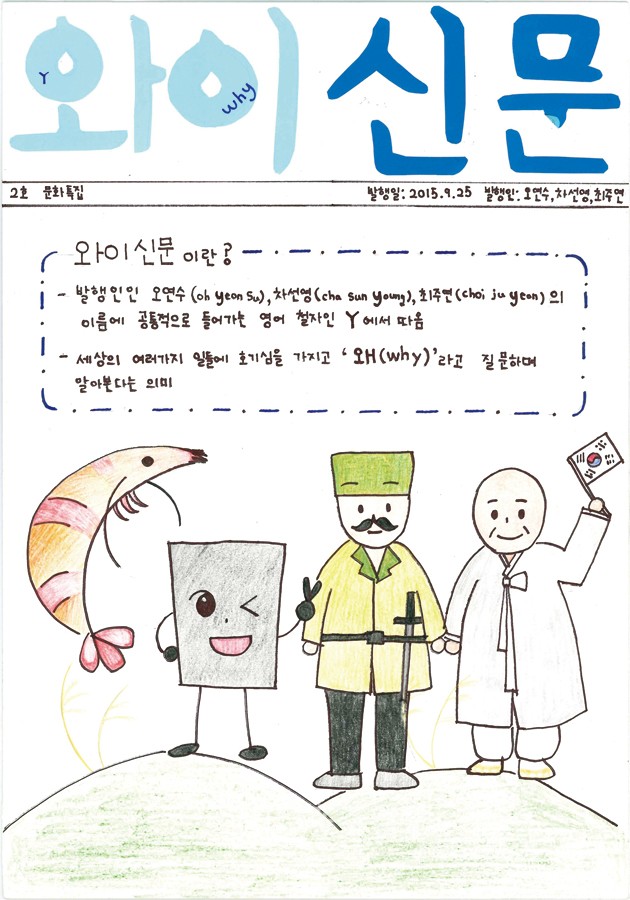 와이신문
Y
why
2호 문화특집 발행일: 2015.9.25 발행인: 오연수, 차선영, 최주연
와이신문이란?
- 발행인인 오연수(oh yeon su), 차선영(cha sun young), 최주연(choi ju yeon)의
이름에 공통적으로 들어가는 영어 철자인 Y에서 따옴
- 세상의 여러가지 일들에 호기심을 가지고 '왜(why)'라고 질문하며
알아본다는 의미